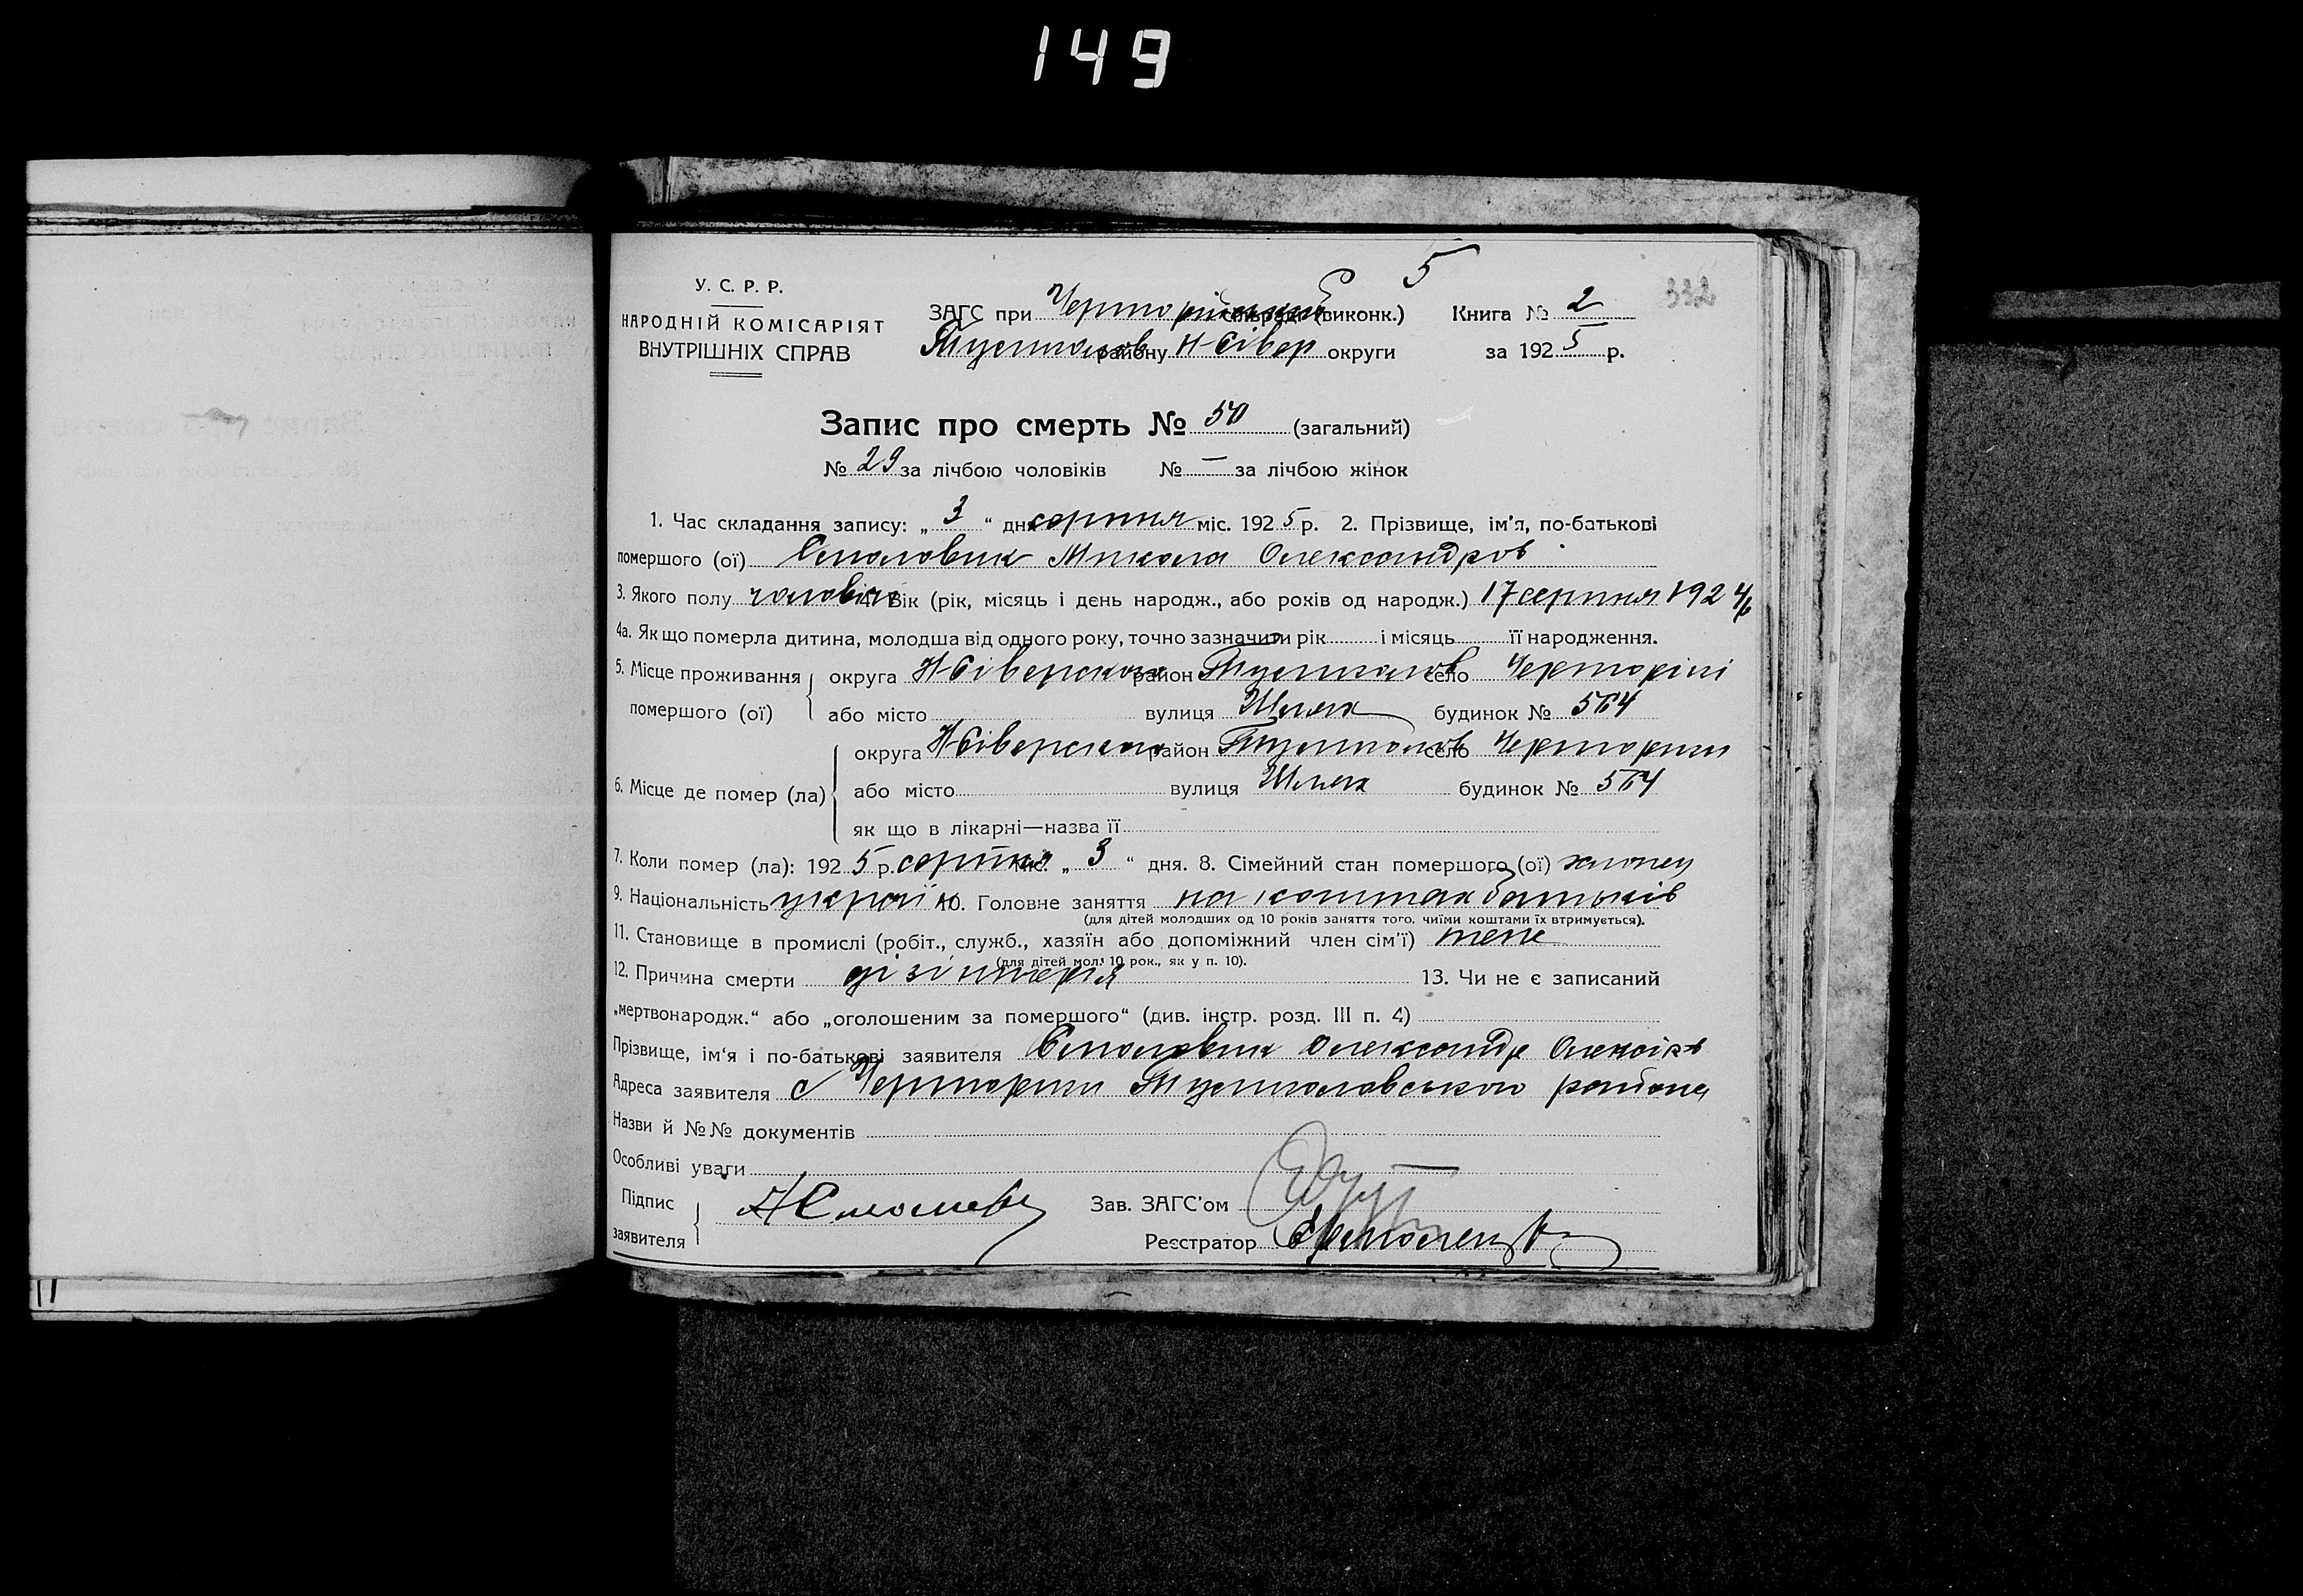 149
5
332
У. С. Р. Р.
НАРОДНІЙ КОМІСАРІЯТ
ВНУТРІШНІХ СПРАВ
ЗАГС при (виконк.) Книга № 2
Тустолов району Н Сівер округи за 1925 р.
Запис про смерть № 50 (загальний)
№ 29 за лічбою чоловіків № — за лічбою жінок
1. Час складання запису: „3“ дня серпня міс. 1925 р. 2. Прізвище, ім'я, по-батькові
помершого (ої) Микола Олександров
3. Якого полу чоловіч 4. Вік (рік, місяць і день народж., або років од народж.) 17 серпня 1924
4а. Як що померла дитина, молодша від одного року, точно зазначити рік і місяць її народження.
5. Місце проживання помершого (ої) округа Н Сіверська район село
або місто вулиця будинок № 564
6. Місце де помер (ла) округа Н Сіверська район село
або місто вулиця будинок № 564
як що в лікарні—назва її
7. Коли помер (ла): 1925 р. серпня міс. „3“ дня. 8. Сімейний стан помершого (ої) хлопец
9. Національність україн 10. Головне заняття на коштах батьків
(для дітей молодших од 10 років заняття того, чиїми коштами їх втримується).
11. Становище в промислі (робіт., служб., хазяїн або допоміжний член сім'ї) теж
(для дітей мол. 10 рок., як у п. 10).
12. Причина смерти дізінтерія 13. Чи не є записаний
„мертвонародж.“ або „оголошеним за помершого“ (див. інстр. розд. III п. 4)
Прізвище, ім'я і по-батькові заявителя Олександр
Адреса заявителя с района
Назви й №№ документів
Особливі уваги
Підпис заявителя Зав. ЗАГС'ом
Реєстратор